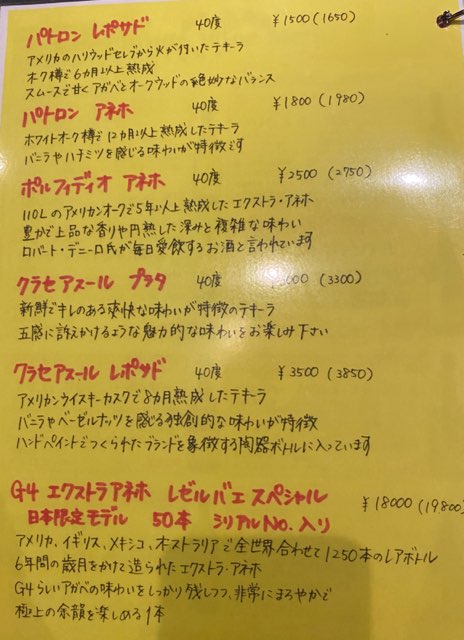 パトロン レポサド 40度 ¥1500(1650)
アメリカのハリウッドセレブから火が付いたテキーラ
オーク樽で6カ月以上熟成
スムースで甘くアガベとオークウッドの絶妙なバランス
パトロン アネホ 40度 ¥1800(1980)
ホワイトオーク樽で12カ月以上熟成したテキーラ
バニラやハチミツを感じる味わいが特徴です
ポルフィディオ アネホ 40度 ¥2500(2750)
110Lのアメリカンオークで5年以上熟成したエクストラ・アネホ
豊かで上品な香りや円熟した深みと複雑な味わい
ロバート・デニーロ氏が毎日愛飲するお酒と言われています
クラセアスール プラタ 40度 000(3300)
新鮮でキレのある爽快な味わいが特徴のテキーラ
五感に訴えかけるような魅力的な味わいをお楽しみ下さい
クラセアスール レポサド 40度 ¥3500(3850)
アメリカンウイスキーカスクで8カ月熟成したテキーラ
バニラやヘーゼルナッツを感じる独創的な味わいが特徴
ハンドペイントでつくられたブランドを象徴する陶器ボトルに入っています
G4 エクストラアネホ レゼルバエスペシャル ¥18000(19800)
日本限定モデル 50本 シリアルNo.入り
アメリカ、イギリス、メキシコ、オーストラリアで全世界合わせて1250本のレアボトル
6年間の歳月をかけて造られたエクストラ・アネホ
G4らしいアガベの味わいをしっかり残しつつ、非常にまろやかで
極上の余韻を楽しめる1本